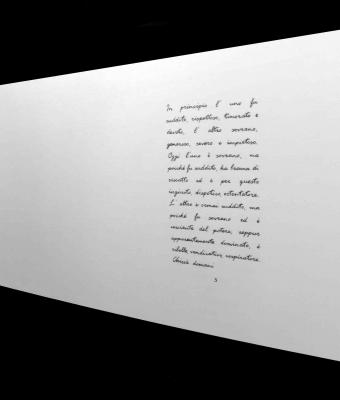 In principio l' uno fu
suddito, rispettoso, timorato e
devoto, l' altro sovrano,
generoso, severo e impietoso.
Oggi l'uno è sovrano, ma
poiché fu suddito, ha brama di
riscatto ed è per questo
ingiusto, dispotico, ostentatore.
L' altro è ormai suddito, ma
poiché fu sovrano ed è
uscito del potere, seppur
apparentemente dominato, è
ribelle, vendicativo, cospiratore.
Chissà domani
5